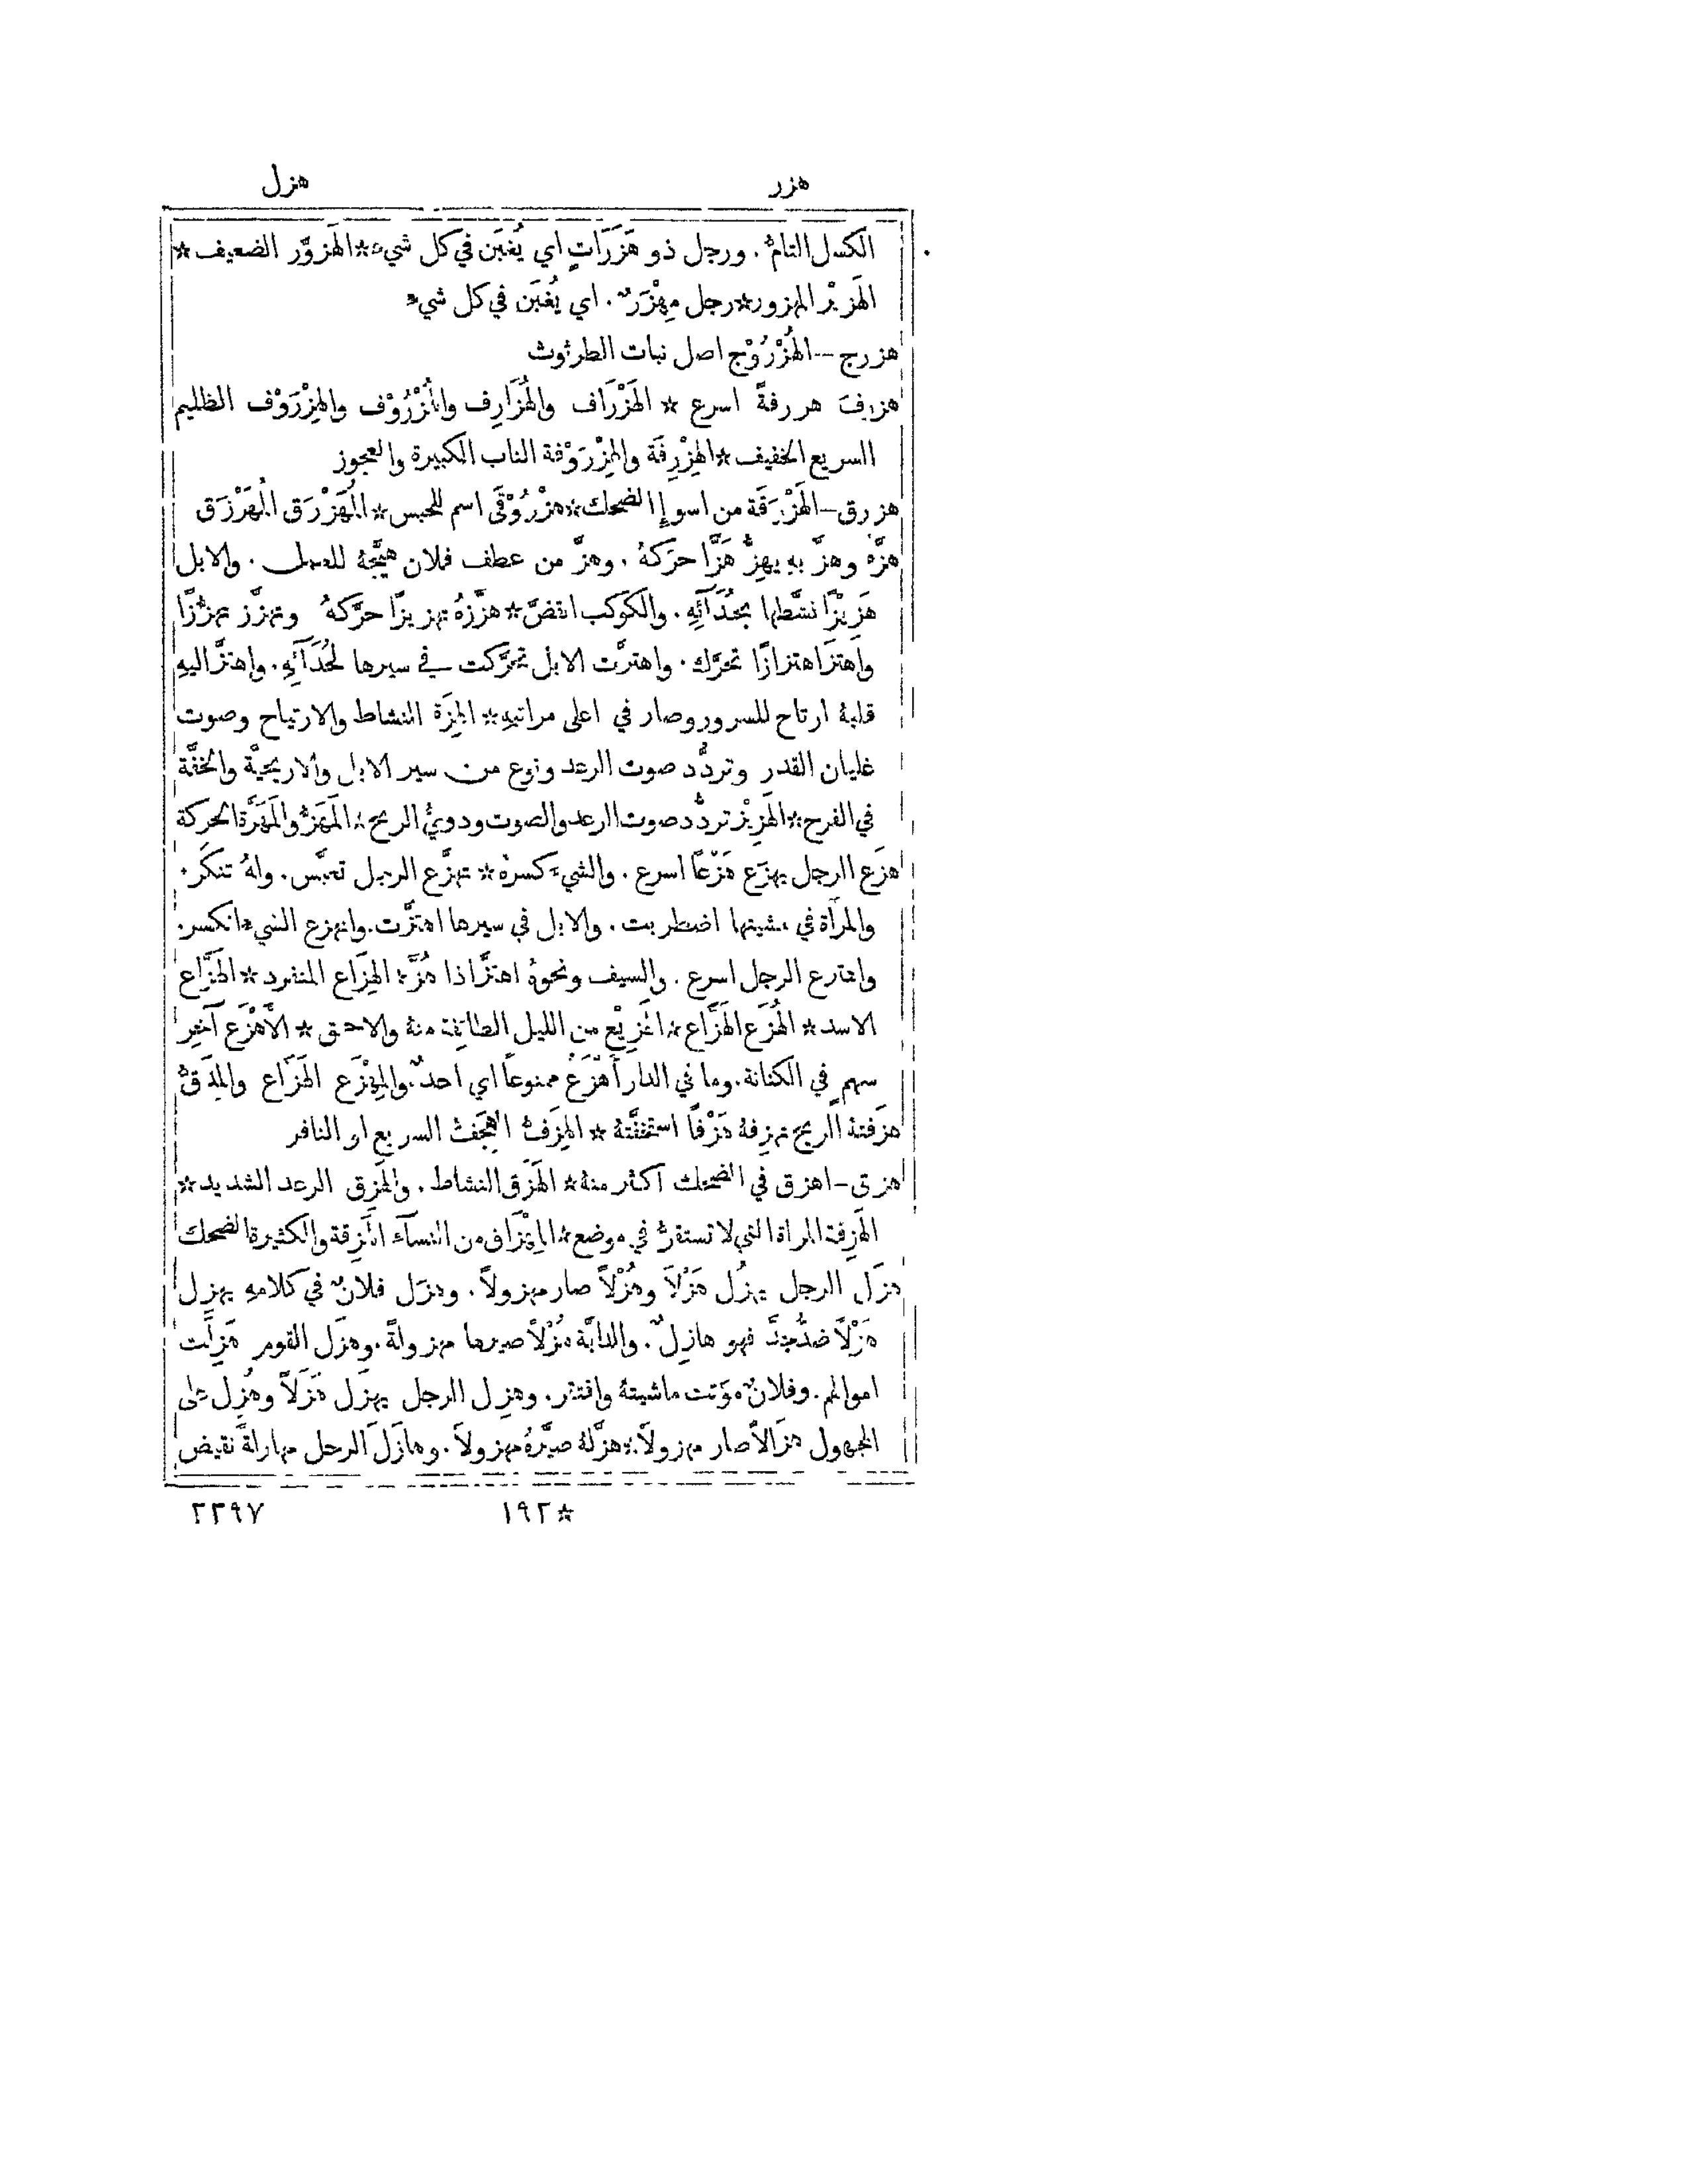 هزر
هزل
الكسل التامُّ. ورجل ذو هَزَرَاتٍ اي يُغبَن في كل شيء * الهَزوَّر الضعيف *
الهَزِيْر المهزور * رجل مِهْزَرٌ. اي يُغبَن في كل شيء
هزرج — الهُزْرُوْج اصل نبات الطرثوث
هزرف هزرفةً اسرع * الهَزْرَاف والهُزَارِف والهُزْرُوْف والهِزْرَوْف الظليم
السريع الخفيف * الهِزْرِفَة والهِزْرَوْفة الناب الكبيرة والعجوز
هزرق — الهَزْرَقَة من اسوإ الضحك * هزْرُوْقَى اسم للحبس * المُهَزْرَق المُهَرْزَق
هزَّهُ وهزَّ بهِ يهزُّ هَزًّا حركهُ. وهزَّ من عطف فلان هيَّجهُ للعمل. والابل
هَزِيْزًا نشَّطها بحُدَآئِهِ. والكوكب انقضَّ * هزَّزهُ تهزيزًا حرَّكهُ وتهزَّز تهزُّزًا
واهتزَّ اهتزازًا تحرَّك. واهتزَّت الابل تحرَّكت في سيرها لحُدَآئِهِ. واهتزَّ اليهِ
قلبهُ ارتاح للسرور وصار في اعلى مراتبهِ * الهِزَة النشاط والارتياح وصوت
غليان القدر وتردُّد صوت الرعد ونوع من سير الابل والاريحيَّة والخفَّة
في الفرح * الهَزِيْز تردُّد صوت الرعد والصوت ودويُّ الريح * المَهَزُّ والمَهَزَّة الحركة
هزَع الرجل يهزَع هَزْعًا اسرع. والشيءَ كسرهُ * تهزَّع الرجل تعبَّس. ولهُ تنكَّر.
والمرأة في مشيتها اضطربت. والابل في سيرها اهتزَّت. وانهزع الشيء انكسر.
واهتزع الرجل اسرع. والسيف ونحوهُ اهتزَّ اذا هُزَّ * الهِزَاع المنفرد * الهَزَّاع
الاسد * الهُزَع الهَزَّاع * الهَزِيْع من الليل الطائفة منهُ والاحمق * الأَهْزَع آخِر
سهم في الكنانة. وما في الدار أَهْزَعُ ممنوعًا اي احدٌ. والمِهْزَع الهَزَّاع والمِدَقُّ
هزَفتهُ الريح تهزِفهُ هَزْفًا استخفَّتهُ * الهِزَفُّ الهِجَفُّ السريع او النافر
هزق — اهزق في الضحك اكثر منهُ * الهَزَق النشاط. والهَزِق الرعد الشديد *
الهَزِقة المراة التي لا تستقرُّ في موضع * المِهْزَاق من النسآء الهَزِقة والكثيرة الضحك
هزَل الرجل يهزُل هَزْلاً وهُزْلاً صار مهزولاً. وهزَل فلانٌ في كلامهِ يهزِل
هَزْلاً ضدُّ جدَّ فهو هازِلٌ. والدابَّة هُزْلاً صيرها مهزولةً. وهزَل القوم هَزِلَت
اموالهم. وفلانٌ موَّتت ماشيتهُ وافتقر. وهزِل الرجل يهزَل هَزَلاً وهُزِل على
المجهول هزَالاً صار مهزولاً * هزَّلهُ صيَّرهُ مهزولاً. وهازَلَ الرجل مهازلةً نقيض
١٩٢*
٢٢٩٧